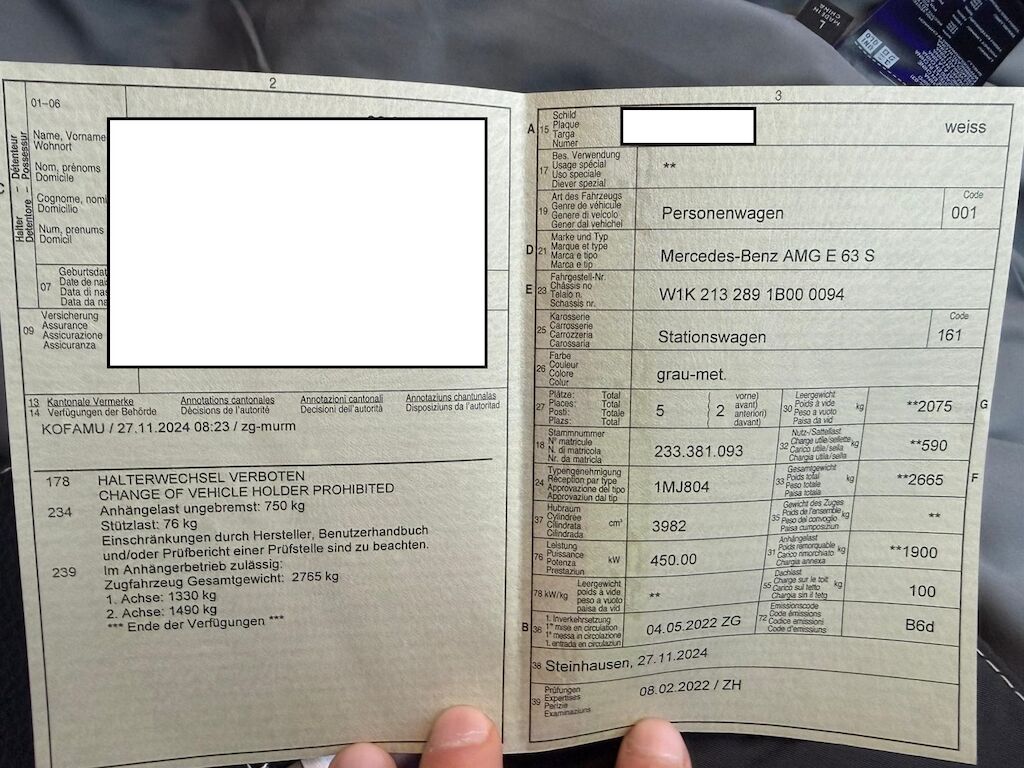 MADE IN
CHINA
L
2
01–06
Halter – Détenteur
Detentore – Possessur
Name, Vorname
Wohnort
Nom, prénoms
Domicile
Cognome, nomi
Domicilio
Num, prenums
Domicil
07
Geburtsdat
Date de nais
Data di nas
Data da na
09
Versicherung
Assurance
Assicurazione
Assicuranza
13 Kantonale Vermerke Annotations cantonales Annotazioni cantonali Annotaziuns chantunalas
14 Verfügungen der Behörde Décisions de l'autorité Decisioni dell'autorità Disposiziuns da l'autoritad
KOFAMU / 27.11.2024 08:23 / zg-murm
178 HALTERWECHSEL VERBOTEN
CHANGE OF VEHICLE HOLDER PROHIBITED
234 Anhängelast ungebremst: 750 kg
Stützlast: 76 kg
Einschränkungen durch Hersteller, Benutzerhandbuch
und/oder Prüfbericht einer Prüfstelle sind zu beachten.
239 Im Anhängerbetrieb zulässig:
Zugfahrzeug Gesamtgewicht: 2765 kg
1. Achse: 1330 kg
2. Achse: 1490 kg
*** Ende der Verfügungen ***
3
A 15
Schild
Plaque
Targa
Numer
weiss
17
Bes. Verwendung
Usage spécial
Uso speciale
Diever spezial
**
19
Art des Fahrzeugs
Genre de véhicule
Genere di veicolo
Gener dal vehichel
Personenwagen
Code
001
D 21
Marke und Typ
Marque et type
Marca e tipo
Marca e tip
Mercedes-Benz AMG E 63 S
E 23
Fahrgestell-Nr.
Châssis no
Telaio n.
Schassis nr.
W1K 213 289 1B00 0094
25
Karosserie
Carrosserie
Carrozzeria
Carossaria
Stationswagen
Code
161
26
Farbe
Couleur
Colore
Colur
grau-met.
27
Plätze: Total
Places: Total
Posti: Totale
Plazs: Total
5
2
vorne)
avant)
anteriori)
davant)
30
Leergewicht
Poids à vide
Peso a vuoto
Paisa da vid
kg
**2075
G
18
Stammnummer
N° matricule
N. di matricola
Nr. da matricla
233.381.093
32
Nutz-/Sattellast
Charge utile/sellette
Carico utile/sella
Chargia utila/sella
kg
**590
24
Typengenehmigung
Réception par type
Approvazione del tipo
Approvaziun dal tip
1MJ804
33
Gesamtgewicht
Poids total
Peso totale
Paisa totala
kg
**2665
F
37
Hubraum
Cylindrée
Cilindrata
Cilindrada
cm³
3982
35
Gewicht des Zuges
Poids de l'ensemble
Peso del convoglio
Paisa cumposiziun
kg
**
76
Leistung
Puissance
Potenza
Prestaziun
kW
450.00
31
Anhängelast
Poids remorquable
Carico rimorchiato
Chargia annexa
kg
**1900
78 kW/kg
Leergewicht
poids à vide
peso a vuoto
paisa da vid
**
55
Dachlast
Charge sur le toit
Carico sul tetto
Chargia sin il tetg
kg
100
B 36
1. Inverkehrsetzung
1re mise en circulation
1a messa in circolazione
1. entrada en circulaziun
04.05.2022 ZG
72
Emissionscode
Code émissions
Codice emissioni
Code d'emissiuns
B6d
38 Steinhausen, 27.11.2024
39
Prüfungen
Expertises
Perizie
Examinaziuns
08.02.2022 / ZH